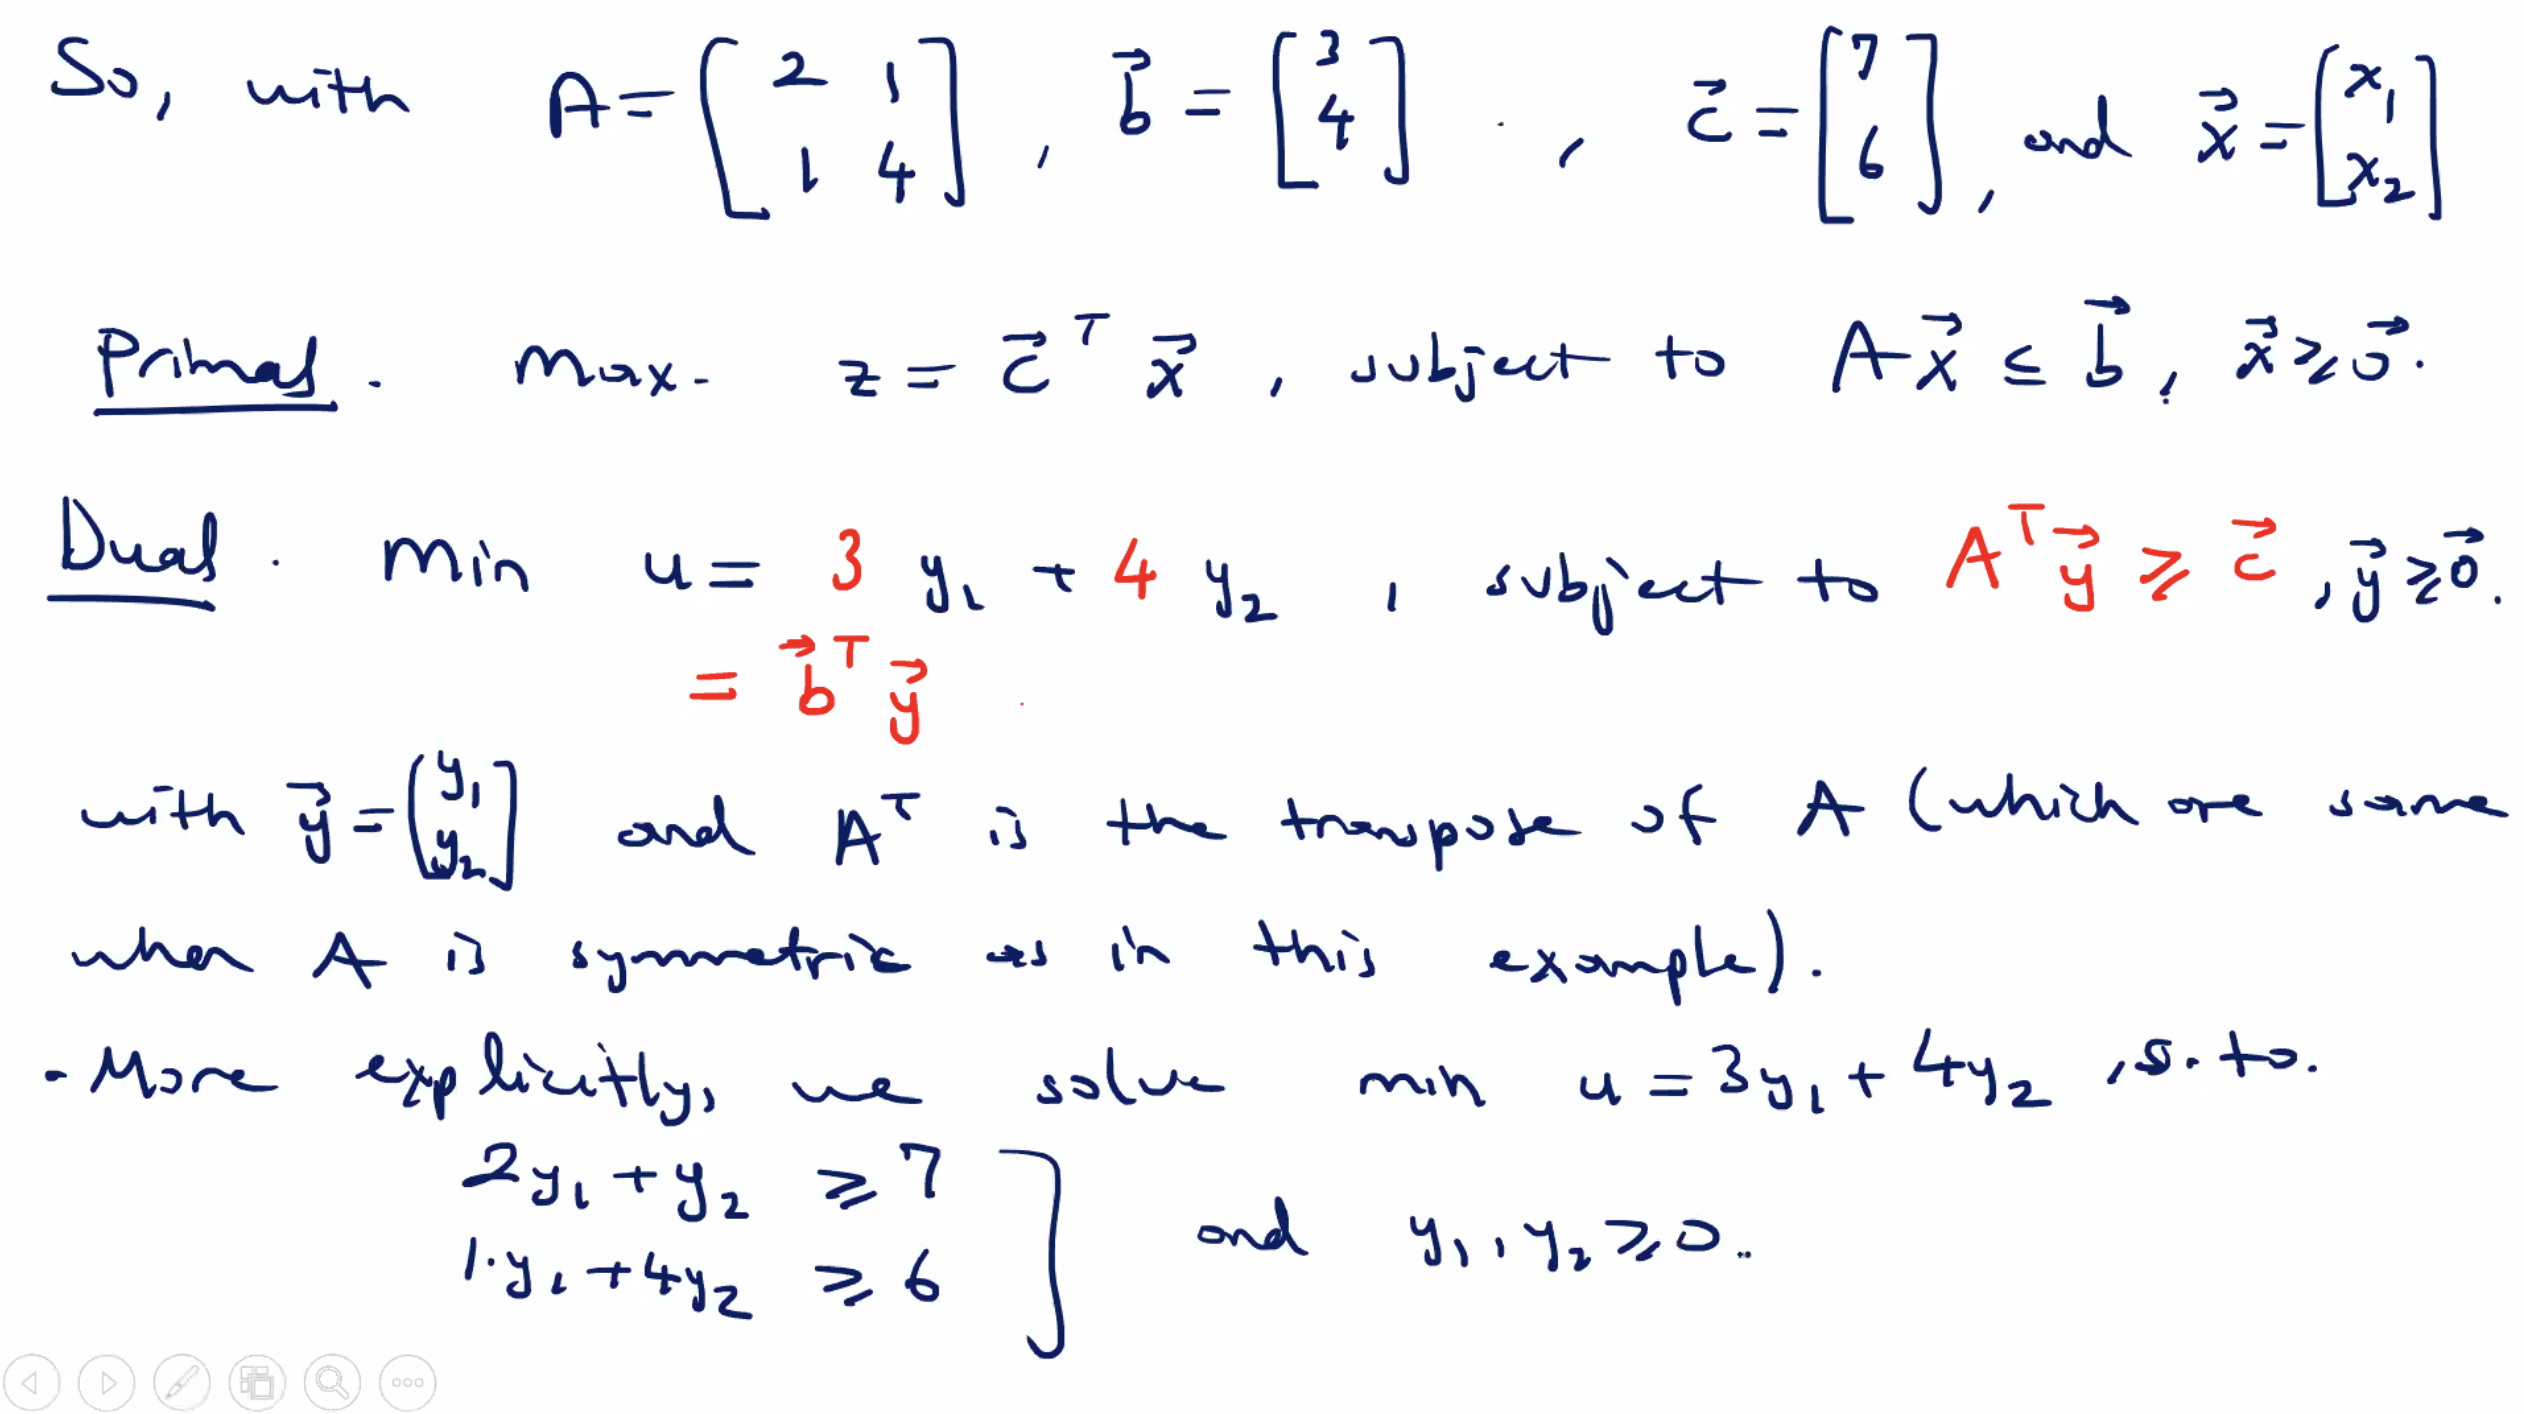 So, with A = [2 1; 1 4], b⃗ = [3; 4], c⃗ = [7; 6], and x⃗ = [x₁; x₂]
Primal. Max. z = c⃗ᵀ x⃗, subject to A x⃗ ≤ b⃗, x⃗ ≥ 0⃗.
Dual. Min u = 3 y₁ + 4 y₂, subject to Aᵀ y⃗ ≥ c⃗, y⃗ ≥ 0⃗.
= b⃗ᵀ y⃗
with y⃗ = [y₁; y₂] and Aᵀ is the transpose of A (which are same
when A is symmetric as in this example).
· More explicitly, we solve min u = 3y₁ + 4y₂, s. to.
2y₁ + y₂ ≥ 7
1·y₁ + 4y₂ ≥ 6 ] and y₁, y₂ ≥ 0.